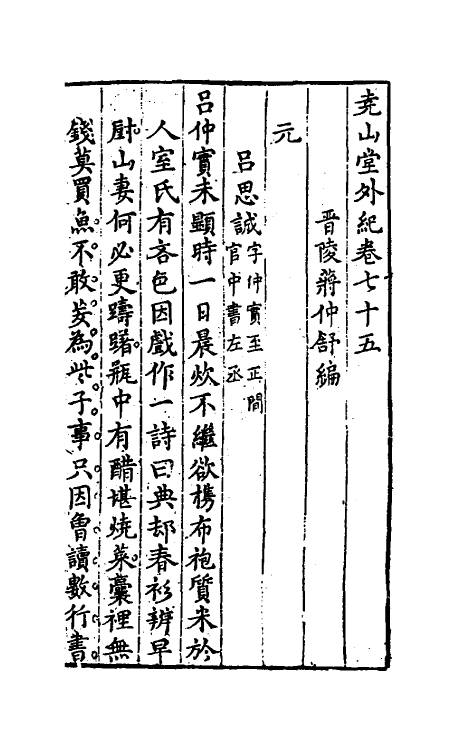 尭山堂外紀卷七十五
晋陵蔣仲舒編
元
呂思誠字仲實至正間官中書左丞
呂仲實未顯時一日晨炊不繼欲携布袍質米於
人室氏有吝色因戲作一詩曰典却春衫辨早
厨山妻何必更躊躇瓶中有醋堪燒菜囊裡無
錢莫買魚不敢妄為些子事只因曾讀數行書